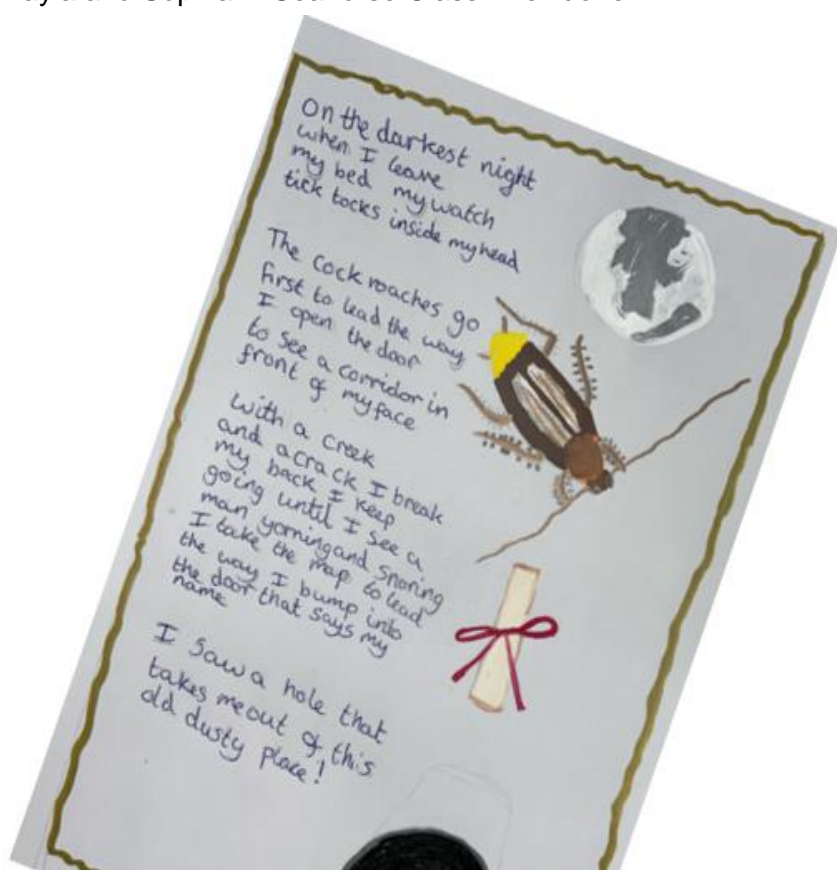 On the darkest night
when I leave
my bed my watch
tick tocks inside my head
The cock roaches go
first to lead the way
I open the door
to see a corridor in
front of my face
With a creek
and a crack I break
my back I keep
going until I see a
man yorning and snoring
I take the map to lead
the way I bump into
the door that says my
name
I saw a hole that
takes me out of this
old dusty place!